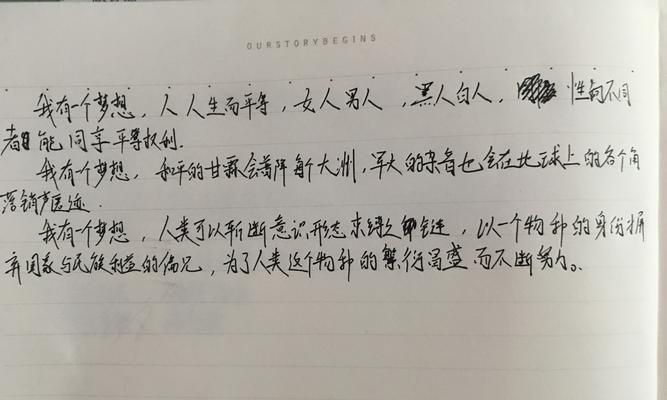 OURSTORYBEGINS
我有一个梦想，人人生而平等，女人男人，黑人白人，性向不同
者能同享平等权利.
我有一个梦想，和平的甘霖会普降每个大洲，军火的杂音也会在地球上的各个角
落销声匿迹.
我有一个梦想，人类可以斩断意识形态束缚之锁链，以一个物种的身份摒
弃国家与民族利益的偏见，为了人类这个物种的繁衍昌盛而不断努力。